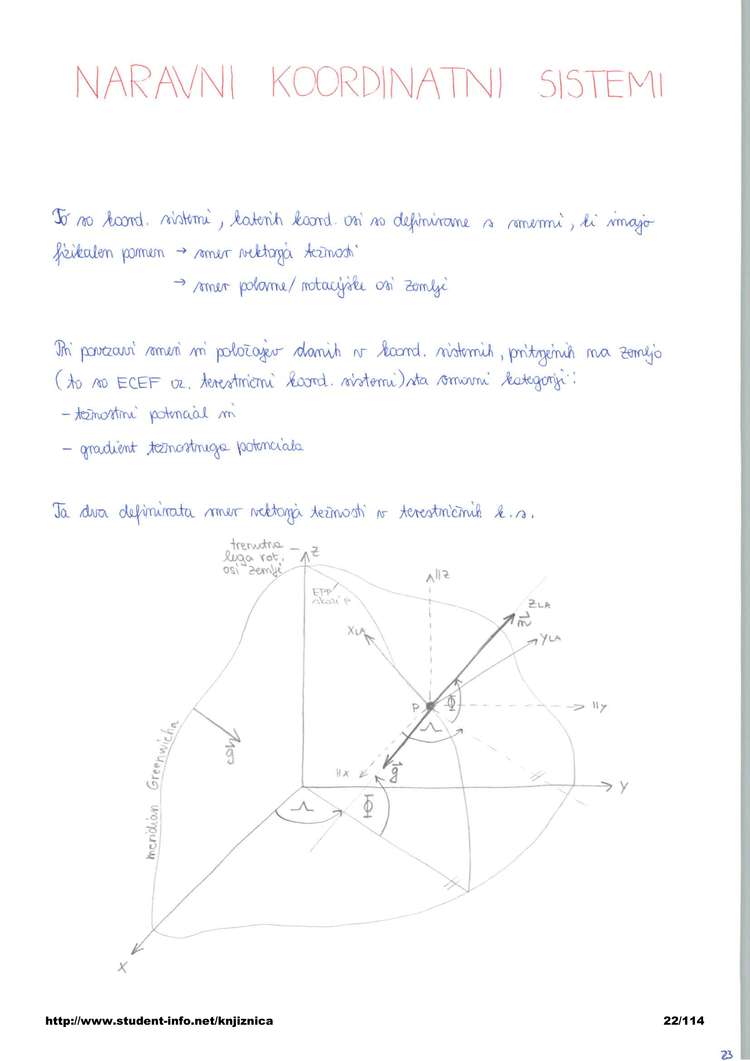 NARAVNI KOORDINATNI SISTEMI
To so koord. sistemi, katerih koord. osi so definirane s smermi, ki imajo
fizikalen pomen → smer vektorja težnosti
→ smer polarne/rotacijske osi Zemlje
Pri povezavi smeri in položajev danih v koord. sistemih, pritrjenih na Zemljo
(to so ECEF oz. terestrični koord. sistemi) sta osnovni kategoriji:
- težnostni potencial in
- gradient težnostnega potenciala
Ta dva definirata smer vektorja težnosti v terestričnih k.s.
trenutna
lega rot.
osi Zemlje
Z
EPP
skozi P
||Z
XLA
ZLA
n
YLA
P
Φ
||Y
Λ
g
||X
g
meridian Greenwicha
Y
Λ
Φ
X
http://www.student-info.net/knjiznica 22/114
23